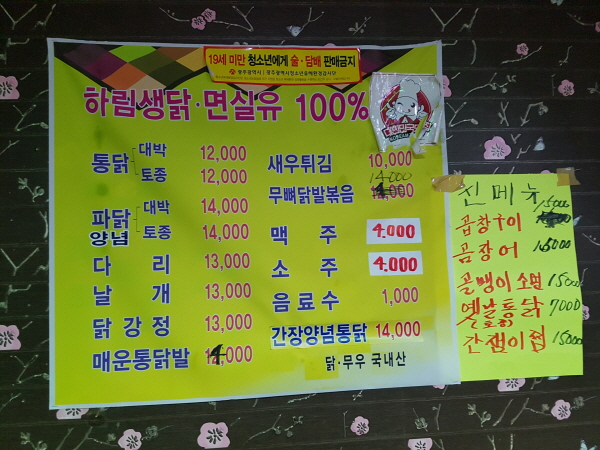 19세 미만 청소년에게 술·담배 판매금지
광주광역시 | 광주광역시청소년유해환경감시단
하림생닭·면실유 100%
통닭 대박 12,000
토종 12,000
파닭 양념 대박 14,000
토종 14,000
다리 13,000
날개 13,000
닭강정 13,000
매운통닭발 14,000
새우튀김 10,000
무뼈닭발볶음 14,000
맥주 4.000
소주 4.000
음료수 1,000
간장양념통닭 14,000
닭·무우 국내산
신메뉴
곱창구이 15000
곰장어
골뱅이소면 15000
옛날통닭 7000
간잽이 15000